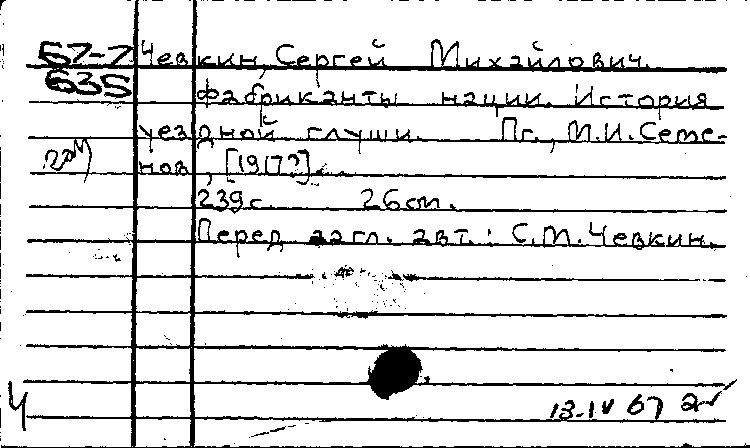 67-7 Чевкин, Сергей Михайлович.
635 Фабриканты нации. История
уездной глуши. Пг., М.И. Семе-
нов, [1917?].
239 с. 26 см.
Перед загл. авт.: С.М. Чевкин.
13-IV 67
Ч